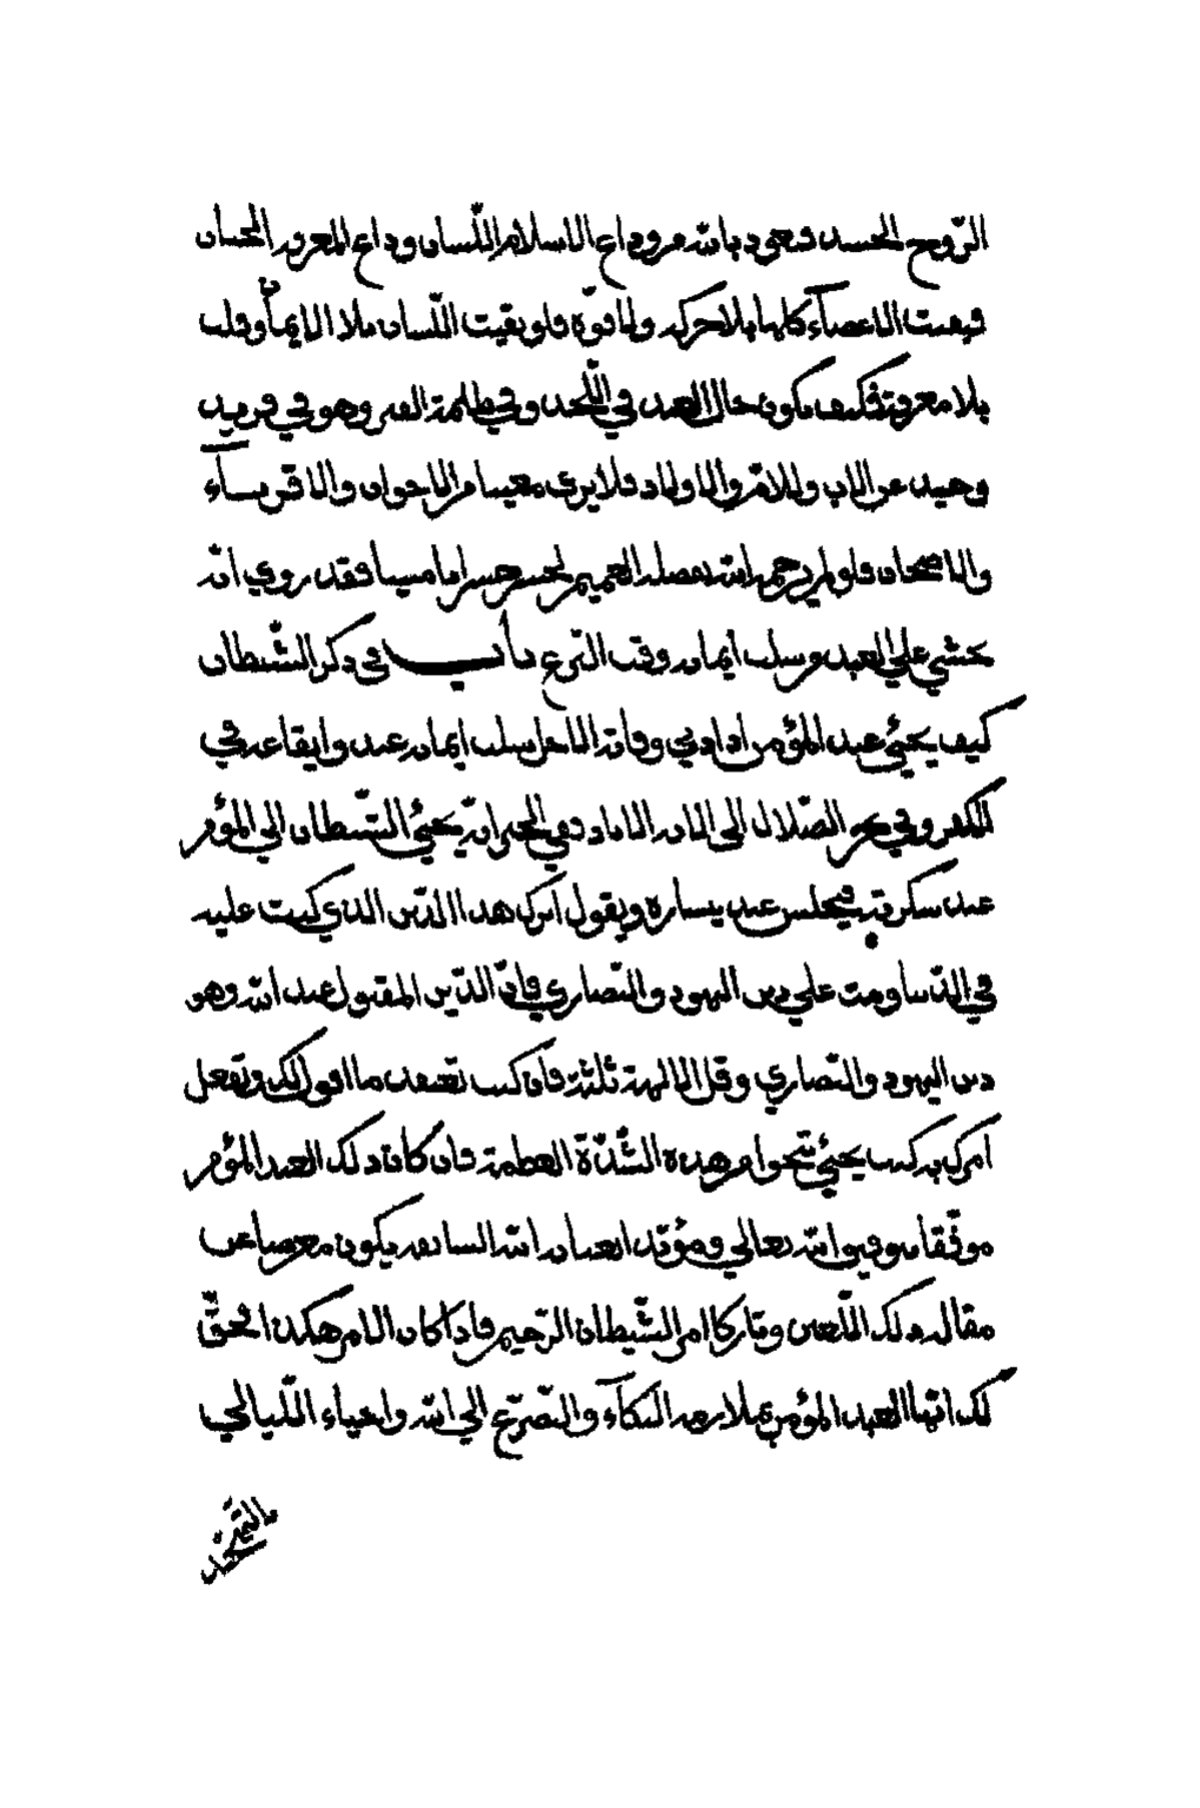 الرّوح الجسد فنعوذ بالله من وداع الاسلام اللّسان ووداع المعرفة الجنان
فبقيت الاعضاء كلها بلا حركة ولا قوّة فلو بقيت اللّسان بلا الايمان وقلب
بلا معرفة فكيف يكون حال العبد في اللّحد وفي ظلمة القبر وهو في
وحيد عن الاب والامّ والاولاد فلا يرى معينا من الاخوان والاقربآء
والاصحاب فلو لم يرحمه الله بفضله العميم لخسر خسرانا مبينا فقد روي انّه
يخشي علي العبد من سلب ايمانه وقت النّزع باب في ذكر الشّيطان
كيف يجئ عند المؤمن اذا دني وفاته لاجل سلب ايمانه عنه وايقاعه في
الكفر وفي بحر الضّلال الى الاباد ففي الخبر انّه يجئ الشّيطان الي المؤمن
عند سكرته فيجلس عند يساره ويقول اترك هذا الدّين الذي كنت عليه
في الدّنيا ومت علي دين اليهود والنّصاري فانّ الدّين المقبول عند الله وهو
دين اليهود والنّصاري وقل الالهة ثلثة فان كنت تعتقد ما اقول لك وتفعل
امرك به كنت يجئ تنجوا من هذه الشّدّة العظيمة فان كان ذلك العبد المؤمن
موفّقا بتوفيق الله تعالي ومؤيّدا بعناية الله السابقة يكون معرضا عن
مقالة ذلك اللّعين وتاركا امر الشّيطان الرّجيم فاذا كان الامر هكذا فحقّ
لك ايّها العبد المؤمن بملازمة البكآء والتّضرّع الي الله واحياء اللّيالي